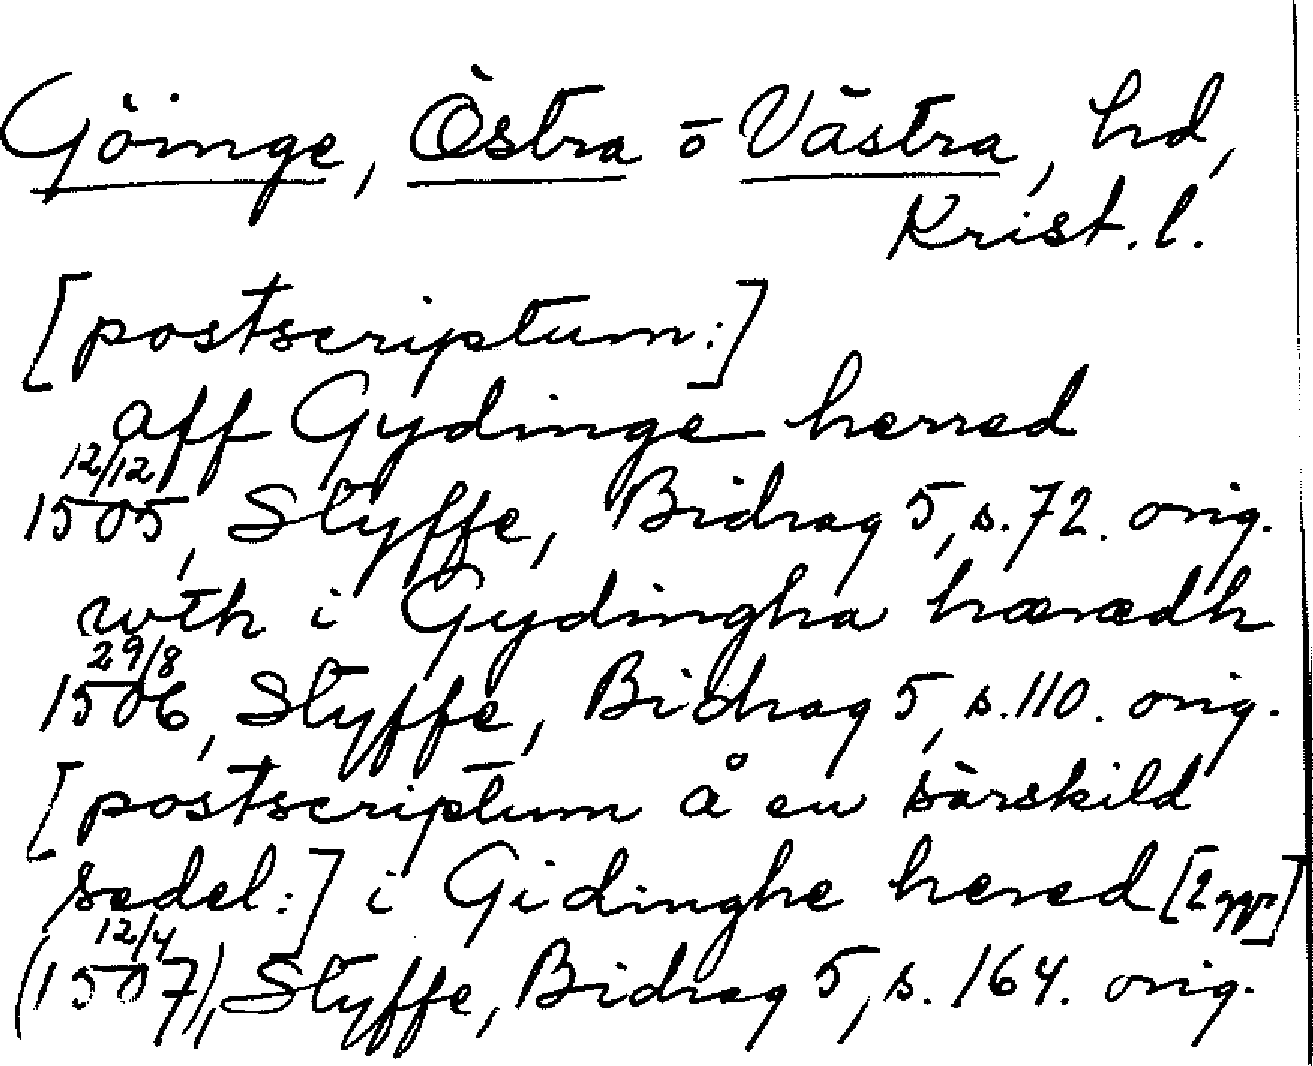 Göinge, Östra o Västra, hd,
Krist. l.
[postscriptum:]
aff Gydinge herred
12/12
1505, Styffe, Bidrag 5, s. 72. orig.
wth i Gydingha hærædh
29/8
1506, Styffe, Bidrag 5, s. 110. orig.
[postscriptum å en särskild
sedel:] i Gidinghe hered [2 ggr]
12/4
(1507), Styffe, Bidrag 5, s. 164. orig.